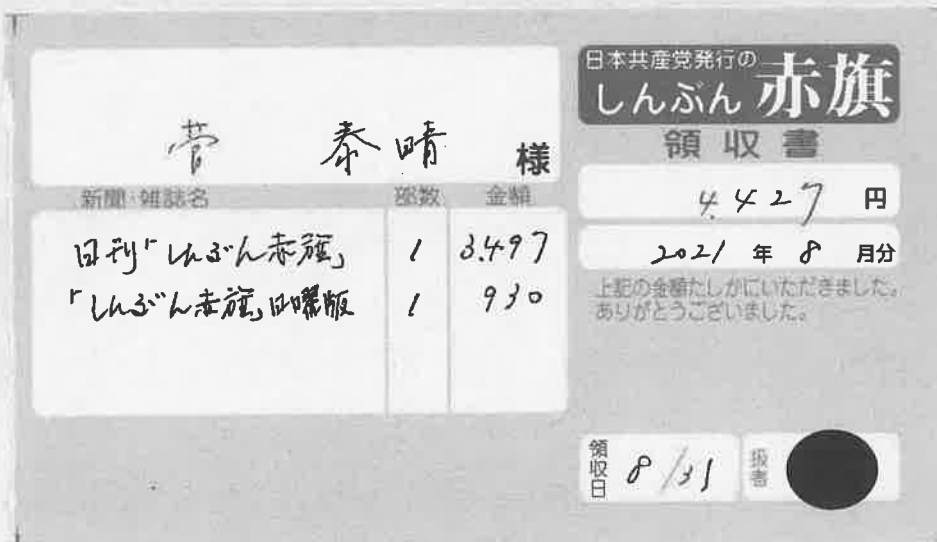 菅 泰晴 様
新聞・雑誌名 部数 金額
日刊「しんぶん赤旗」 1 3,497
「しんぶん赤旗」日曜版 1 930
日本共産党発行の
しんぶん赤旗
領収書
4,427円
2021年8月分
上記の金額たしかにいただきました。
ありがとうございました。
領収日 8/31 扱者